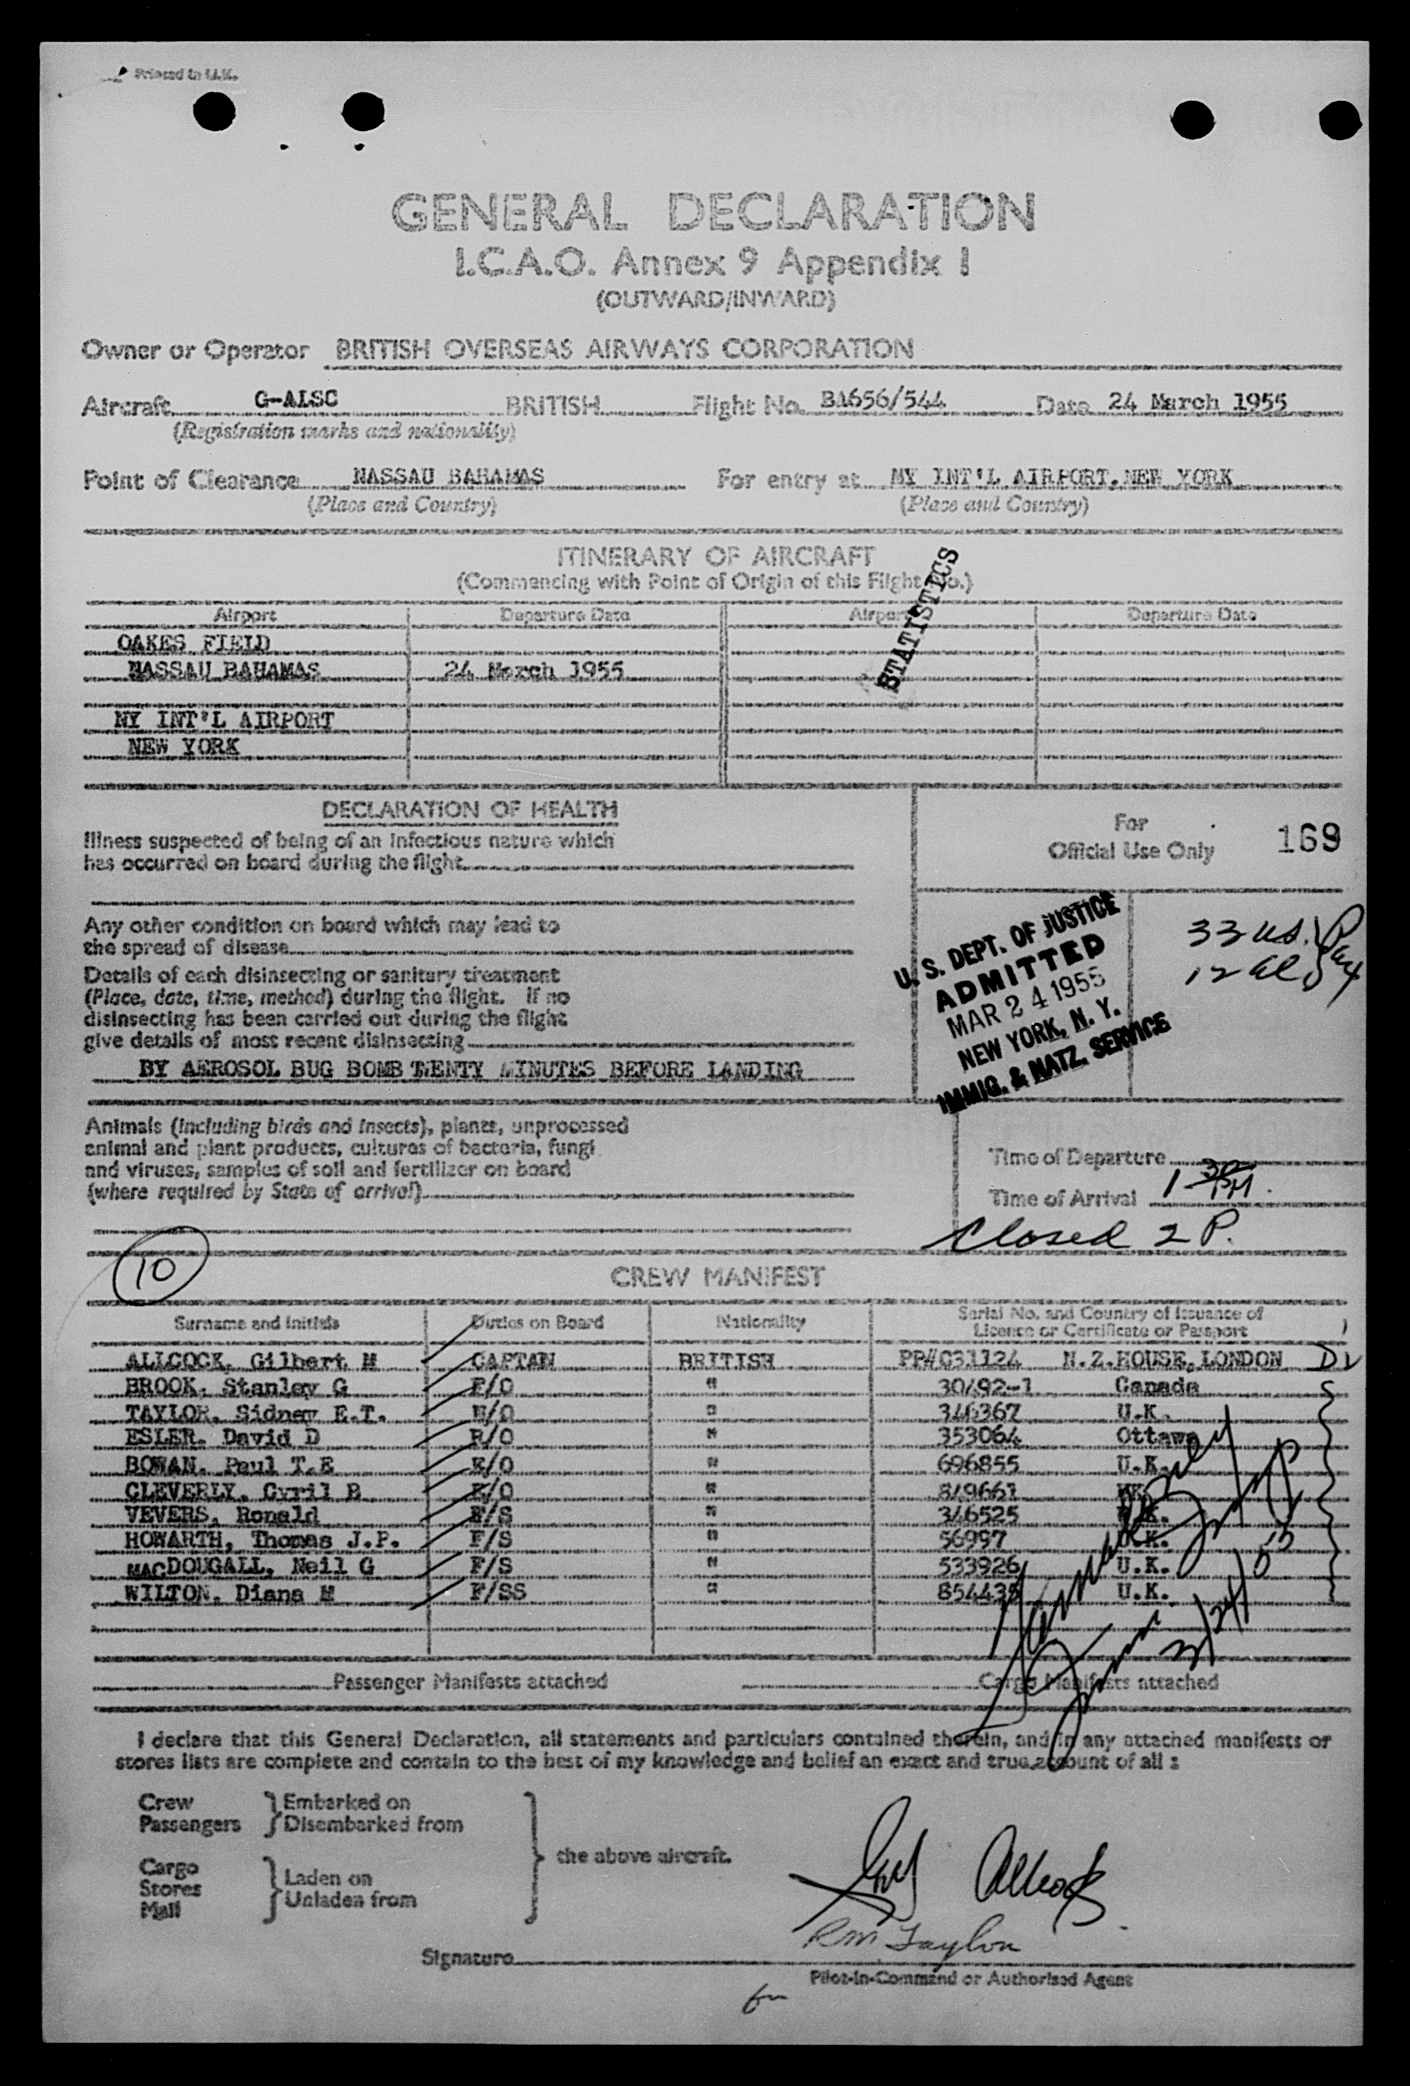 Printed in U.K.
GENERAL DECLARATION
I.C.A.O. Annex 9 Appendix I
(OUTWARD/INWARD)
Owner or Operator BRITISH OVERSEAS AIRWAYS CORPORATION
Aircraft G-ALSC BRITISH Flight No. BA656/544 Date 24 March 1955
(Registration marks and nationality)
Point of Clearance NASSAU BAHAMAS For entry at NY INT'L AIRPORT, NEW YORK
(Place and Country) (Place and Country)
ITINERARY OF AIRCRAFT
(Commencing with Point of Origin of this Flight No.)
STATISTICS
Airport Departure Date Airport Departure Date
OAKES FIELD
NASSAU BAHAMAS 24 March 1955
NY INT'L AIRPORT
NEW YORK
DECLARATION OF HEALTH
Illness suspected of being of an infectious nature which
has occurred on board during the flight
For
Official Use Only 169
Any other condition on board which may lead to
the spread of disease
Details of each disinsecting or sanitary treatment
(Place, date, time, method) during the flight. If no
disinsecting has been carried out during the flight
give details of most recent disinsecting
BY AEROSOL BUG BOMB TWENTY MINUTES BEFORE LANDING
U. S. DEPT. OF JUSTICE
ADMITTED
MAR 24 1955
NEW YORK, N. Y.
IMMIG. & NATZ. SERVICE
33 us.
12 al
Animals (including birds and insects), plants, unprocessed
animal and plant products, cultures of bacteria, fungi
and viruses, samples of soil and fertilizer on board
(where required by State of arrival)
Time of Departure
Time of Arrival 1 30 PM.
Closed 2 P.
10
CREW MANIFEST
Surname and Initials Duties on Board Nationality Serial No. and Country of Issuance of
Licence or Certificate or Passport
ALLCOCK, Gilbert M CAPTAIN BRITISH PP#C31124 N.Z.HOUSE, LONDON
BROOK, Stanley G F/O " 30492-1 Canada
TAYLOR, Sidney E.T. N/O " 346367 U.K.
ESLER, David D R/O " 353064 Ottawa
BOWAN, Paul T.E E/O " 696855 U.K.
CLEVERLY, Cyril B E/O " 849661 UK
VEVERS, Ronald F/S " 346525 U.K.
HOWARTH, Thomas J.P. F/S " 56997 U.K.
MACDOUGALL, Neil G F/S " 533926 U.K.
WILTON, Diana M F/SS " 854435 U.K.
3/24/55
Passenger Manifests attached Cargo Manifests attached
I declare that this General Declaration, all statements and particulars contained therein, and in any attached manifests or
stores lists are complete and contain to the best of my knowledge and belief an exact and true account of all :
Crew
Passengers
Embarked on
Disembarked from
Cargo
Stores
Mail
Laden on
Unladen from
the above aircraft.
Allcock
RM Taylor
Signature
Pilot-in-Command or Authorised Agent
for